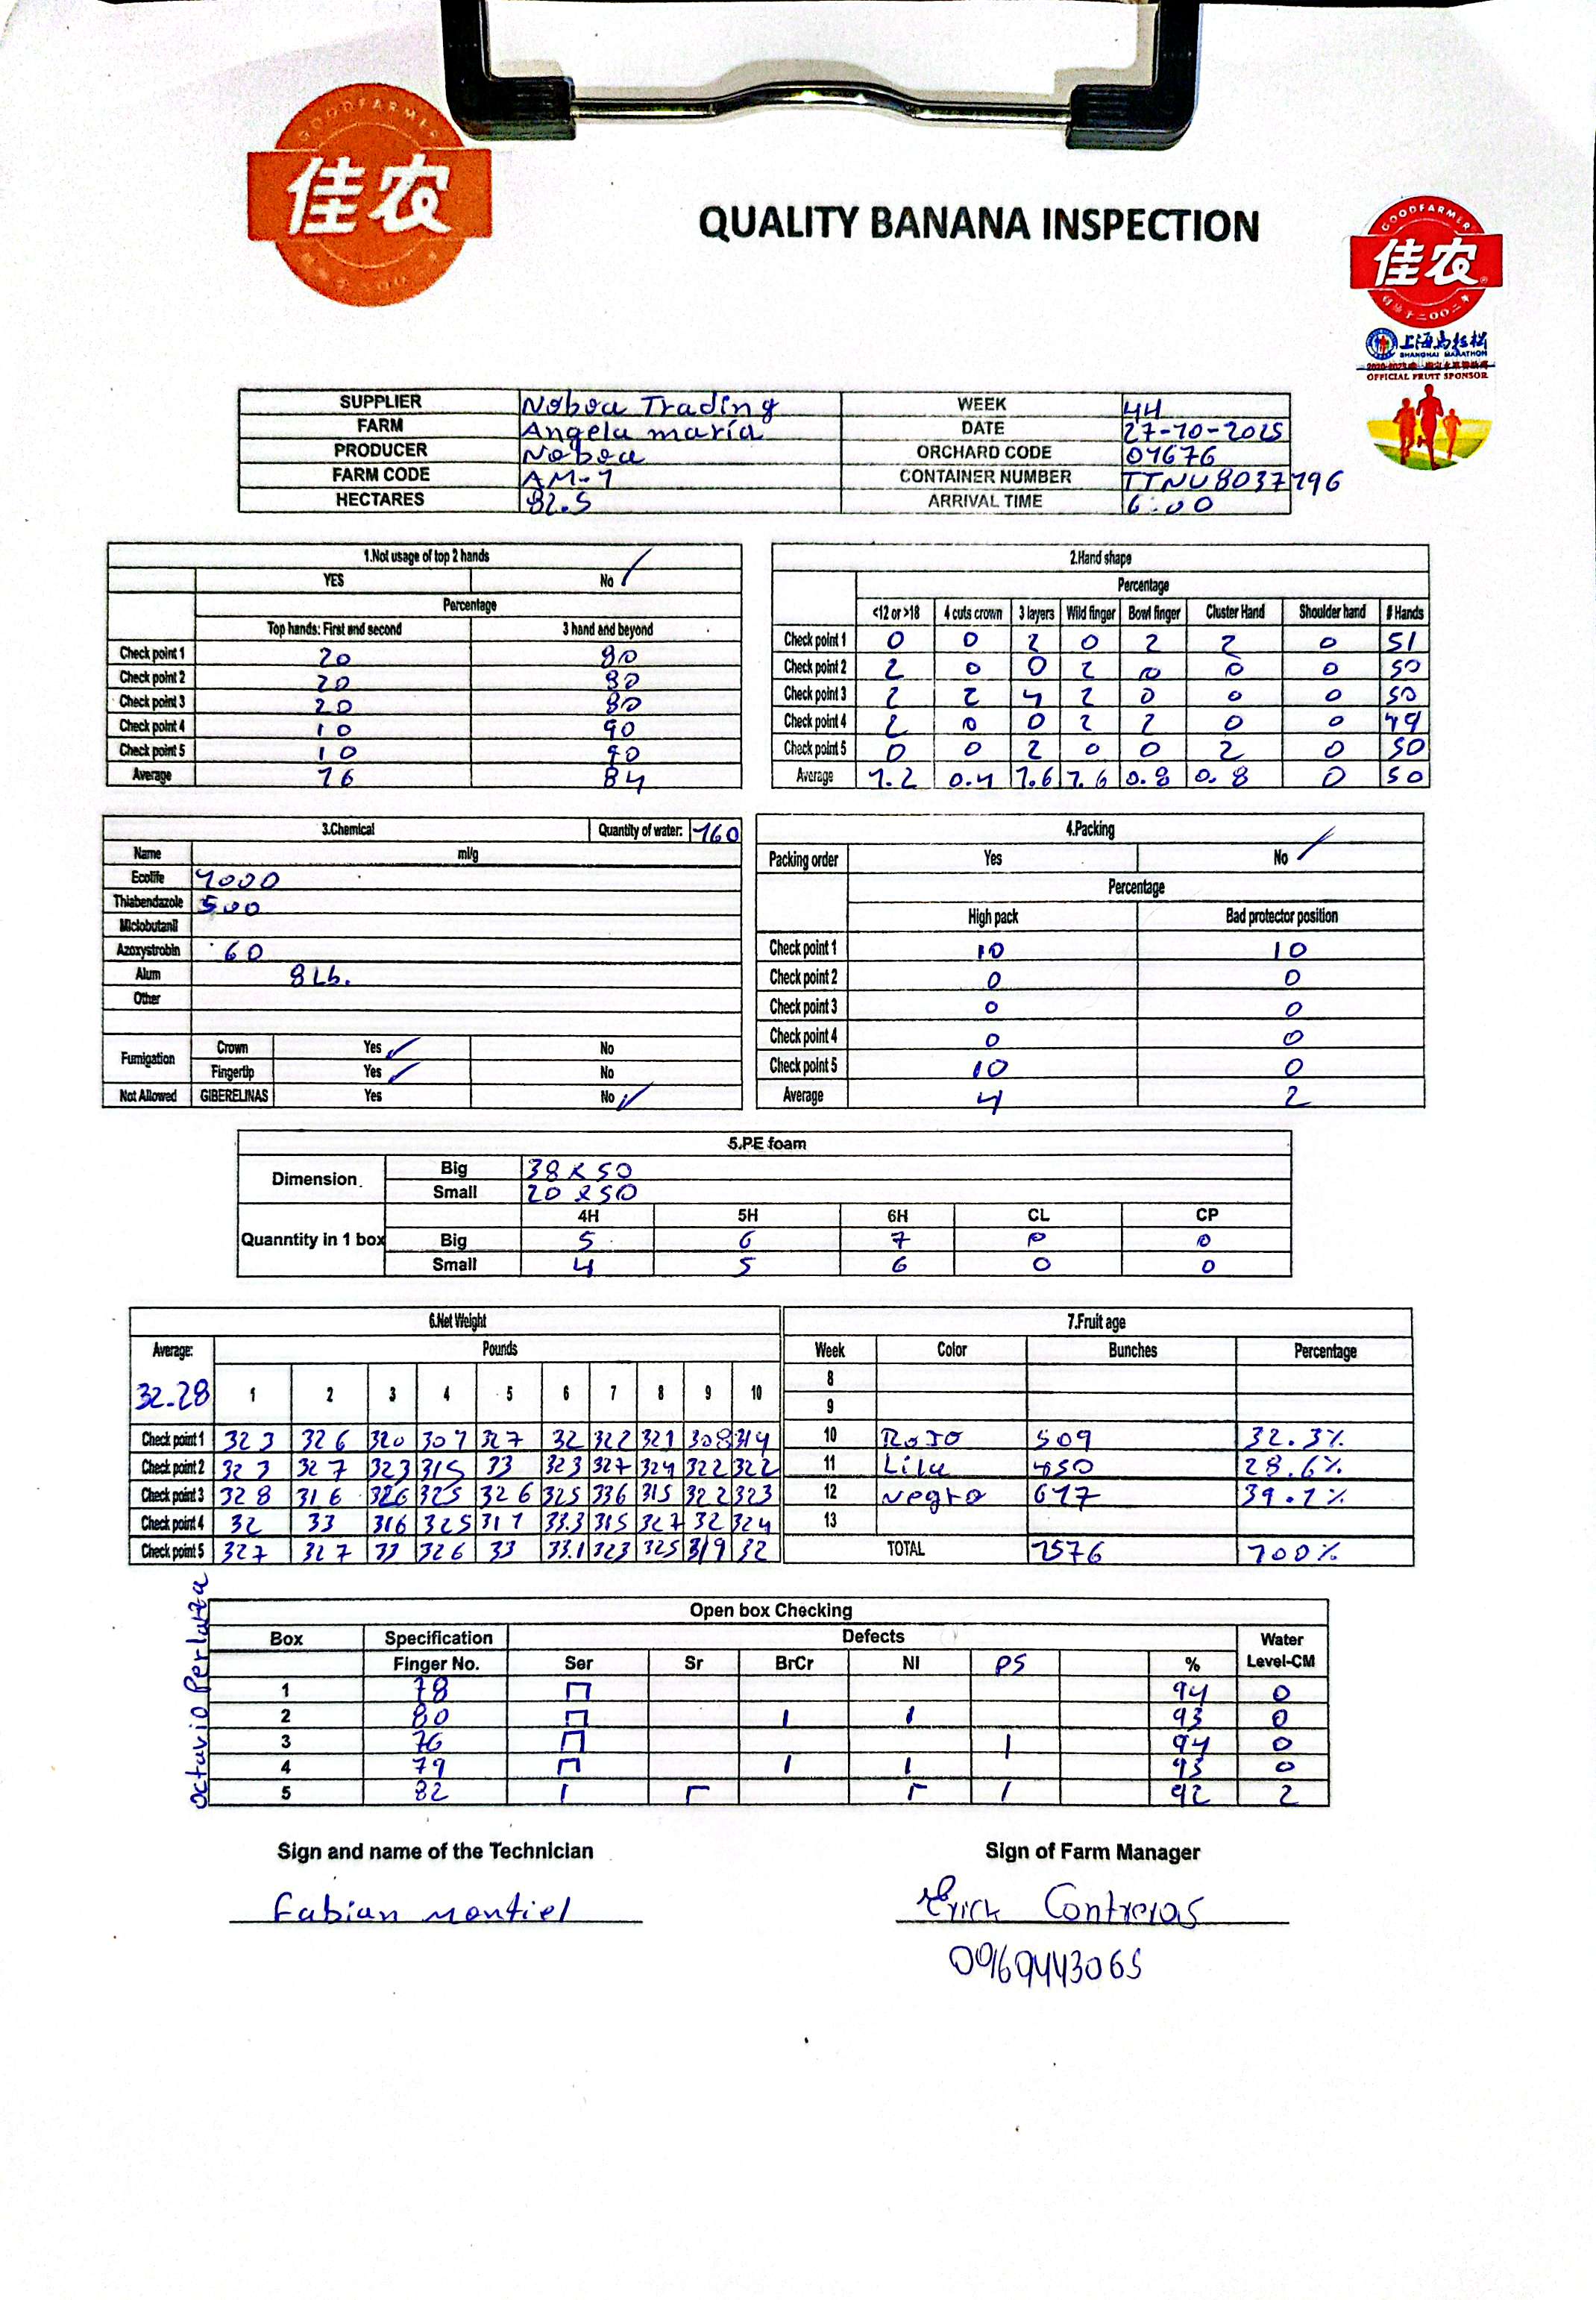 GOODFARMER
佳农
QUALITY BANANA INSPECTION
GOODFARMER
佳农
上海马拉松
SHANGHAI MARATHON
OFFICIAL FRUIT SPONSOR
SUPPLIER Noboa Trading WEEK 44
FARM Angela maría DATE 27-10-2025
PRODUCER Noboa ORCHARD CODE 04676
FARM CODE AM-1 CONTAINER NUMBER TTNU8037196
HECTARES 82.5 ARRIVAL TIME 6:00
1.Not usage of top 2 hands
YES No ✓
Percentage
Top hands: First and second 3 hand and beyond
Check point 1 20 80
Check point 2 20 80
Check point 3 20 80
Check point 4 10 90
Check point 5 10 90
Average 16 84
2.Hand shape
Percentage
<12 or >18 4 cuts crown 3 layers Wild finger Bowl finger Cluster Hand Shoulder hand # Hands
Check point 1 0 0 2 0 2 2 0 51
Check point 2 2 0 0 2 0 0 0 50
Check point 3 2 2 4 2 0 0 0 50
Check point 4 2 0 0 2 2 0 0 49
Check point 5 0 0 2 0 0 2 0 50
Average 1.2 0.4 1.6 1.6 0.8 0.8 0 50
3.Chemical Quantity of water: 160
Name ml/g
Ecolife 1000
Thiabendazole 500
Miclobutanil
Azoxystrobin 60
Alum 8 Lb.
Other
Fumigation Crown Yes ✓ No
Fingertip Yes ✓ No
Not Allowed GIBERELINAS Yes No ✓
4.Packing
Packing order Yes No ✓
Percentage
High pack Bad protector position
Check point 1 10 10
Check point 2 0 0
Check point 3 0 0
Check point 4 0 0
Check point 5 10 0
Average 4 2
5.PE foam
Dimension. Big 38 x 50
Small 20 x 50
4H 5H 6H CL CP
Quanntity in 1 box Big 5 6 7 0 0
Small 4 5 6 0 0
6.Net Weight
Average: Pounds
32.28 1 2 3 4 5 6 7 8 9 10
Check point 1 323 326 320 307 327 32 322 321 308 314
Check point 2 323 327 323 315 33 323 327 324 322 322
Check point 3 328 316 326 325 326 325 336 315 322 323
Check point 4 32 33 316 325 317 33.3 315 327 32 324
Check point 5 327 327 33 326 33 33.1 323 325 319 32
7.Fruit age
Week Color Bunches Percentage
8
9
10 Rojo 509 32.3%
11 Lila 450 28.6%
12 negro 617 39.1%
13
TOTAL 1576 100%
octavio Perlaza
Open box Checking
Box Specification Defects Water
Finger No. Ser Sr BrCr NI PS % Level-CM
1 78 94 0
2 80 I I 93 0
3 76 I 94 0
4 79 I I 93 0
5 82 I I 92 2
Sign and name of the Technician Sign of Farm Manager
Fabian montiel Erick Contreras
0969443065